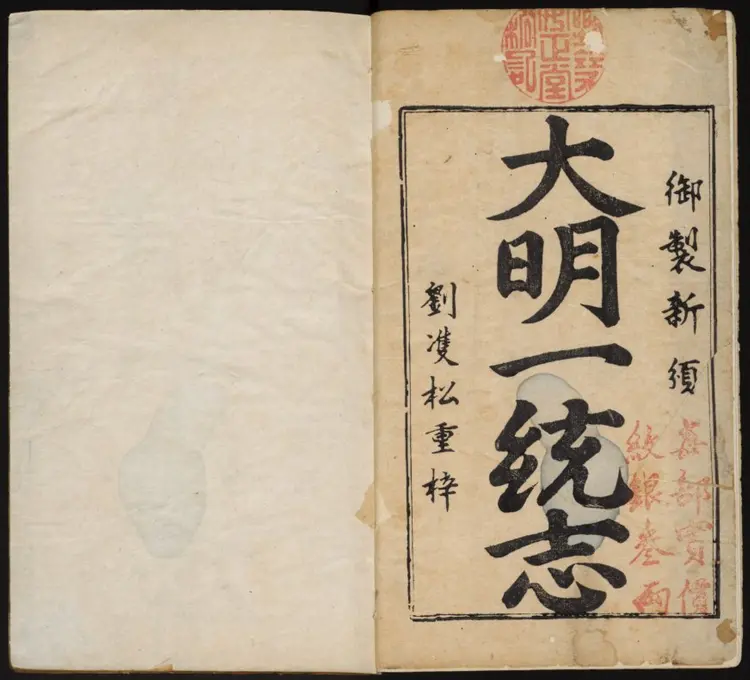 御製新頒
大明一統志
劉雙松重梓
每部實價
紋銀叁兩